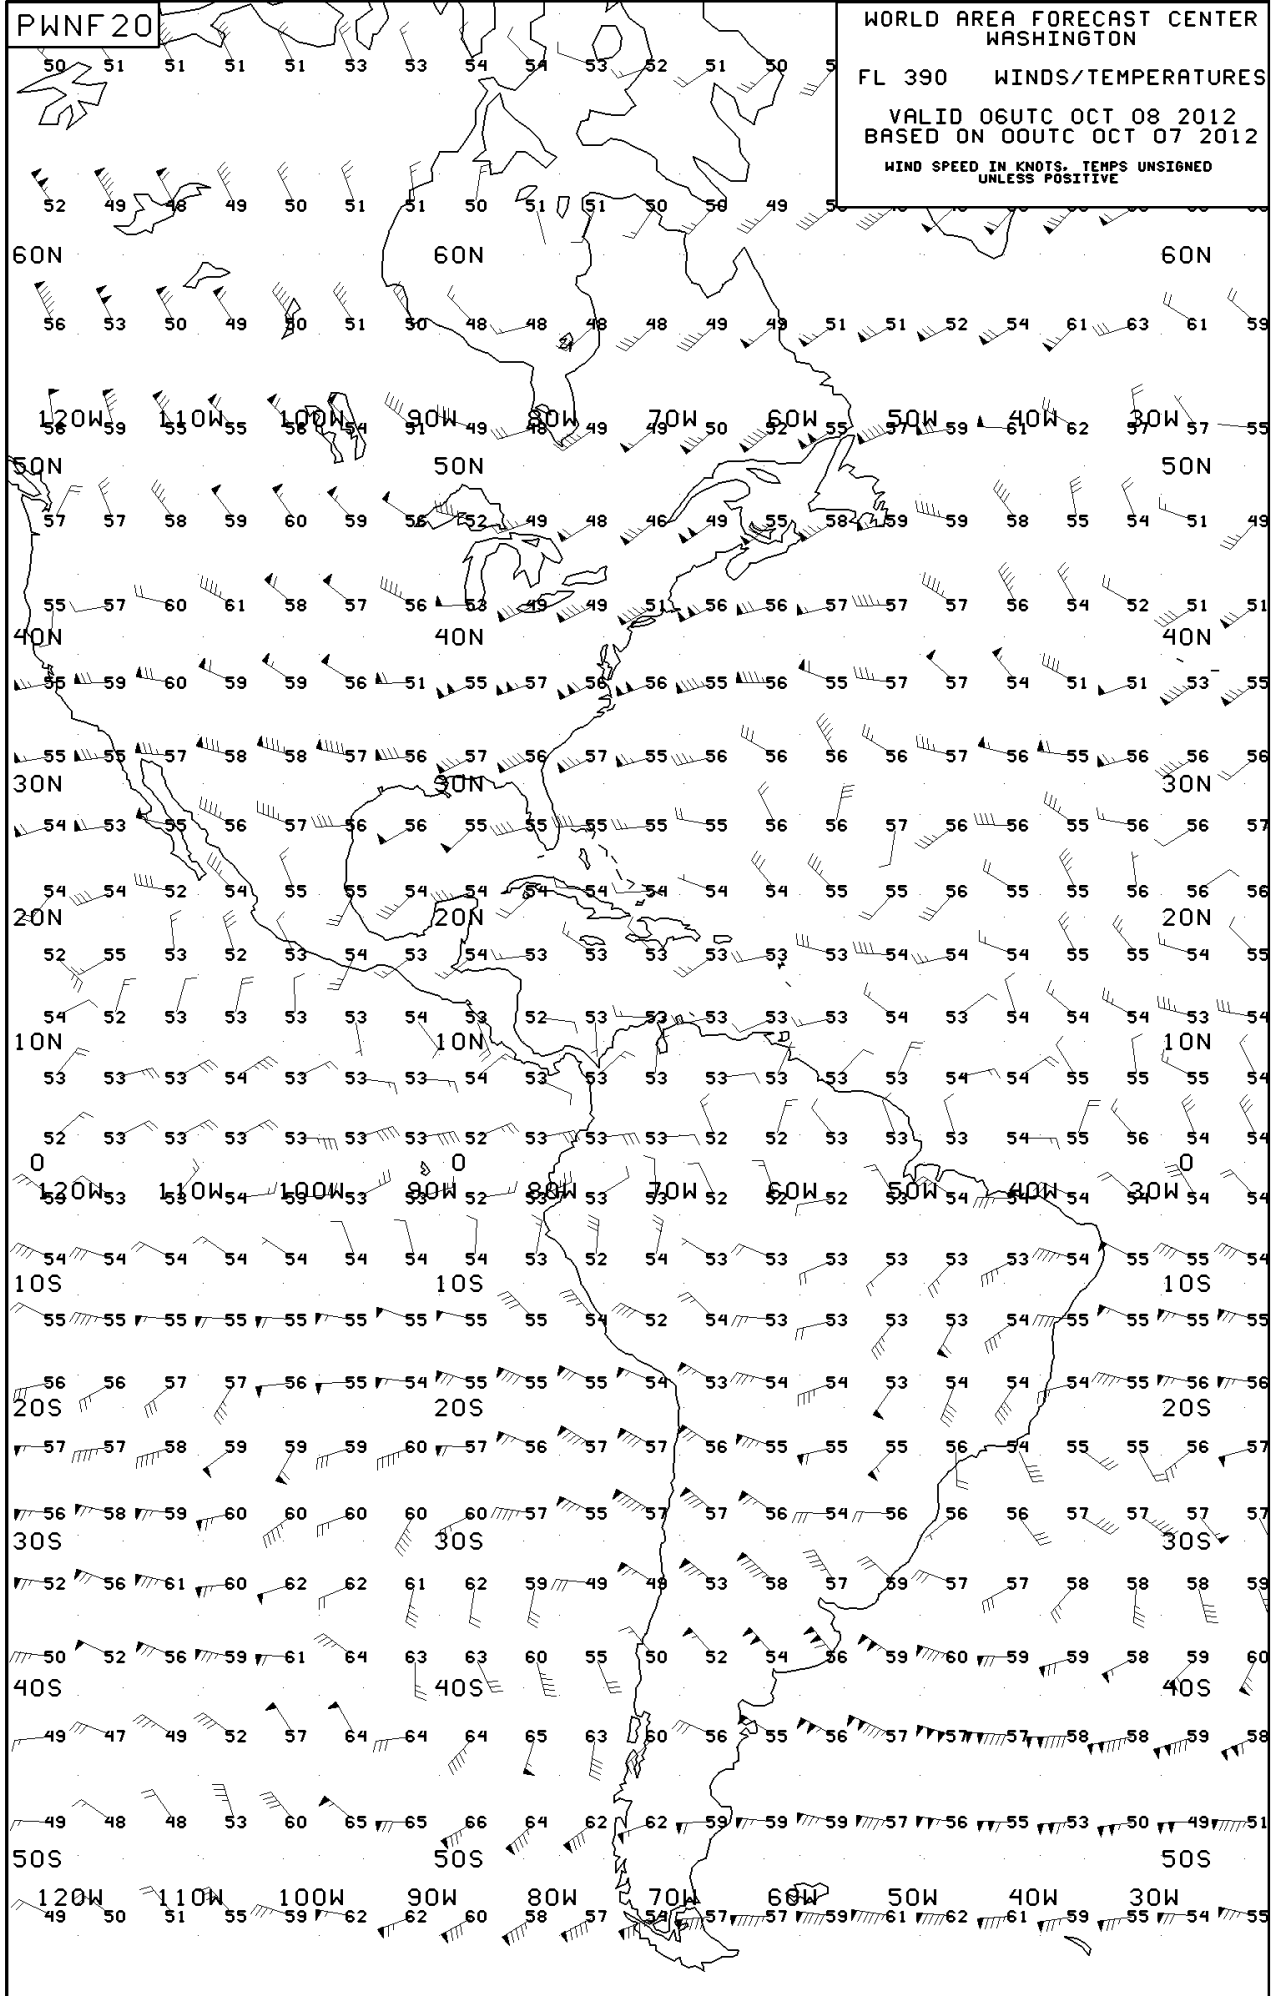 PWNF20
WORLD AREA FORECAST CENTER
WASHINGTON
FL 390 WINDS/TEMPERATURES
VALID 06UTC OCT 08 2012
BASED ON 00UTC OCT 07 2012
WIND SPEED IN KNOTS, TEMPS UNSIGNED
UNLESS POSITIVE
50 51 51 51 51 53 53 54 54 53 52 51 50
52 49 48 49 50 51 51 50 51 51 50 50 49
60N 60N 60N
56 53 50 49 50 51 50 48 48 48 48 49 49 51 51 52 54 61 63 61 59
120W 110W 100W 90W 80W 70W 60W 50W 40W 30W
56 59 55 55 56 54 51 49 48 49 49 50 52 55 57 59 61 62 57 57 55
50N 50N 50N
57 57 58 59 60 59 56 52 49 48 46 49 55 58 59 59 58 55 54 51 49
55 57 60 61 58 57 56 53 49 49 51 56 56 57 57 57 56 54 52 51 51
40N 40N 40N
55 59 60 59 59 56 51 55 57 56 56 55 56 55 57 57 54 51 51 53 55
55 55 57 58 58 57 56 57 56 57 55 56 56 56 56 57 56 55 56 56 56
30N 30N 30N
54 53 55 56 57 56 56 55 55 55 55 55 56 56 57 56 56 55 56 56 57
54 54 52 54 55 55 54 54 54 54 54 54 54 55 55 56 55 55 56 56 56
20N 20N 20N
52 55 53 52 53 54 53 54 53 53 53 53 53 53 54 54 54 55 55 54 55
54 52 53 53 53 53 54 53 52 53 53 53 53 53 54 53 54 54 54 53 54
10N 10N 10N
53 53 53 54 53 53 53 54 53 53 53 53 53 53 53 54 54 55 55 55 54
52 53 53 53 53 53 53 52 53 53 53 52 52 53 53 53 54 55 56 54 54
0 0 0
120W 110W 100W 90W 80W 70W 60W 50W 40W 30W
53 53 53 54 53 53 53 52 53 53 53 52 52 52 53 54 54 54 54 54 54
54 54 54 54 54 54 54 54 53 52 54 53 53 53 53 53 53 54 55 55 54
10S 10S 10S
55 55 55 55 55 55 55 55 55 54 52 54 53 53 53 53 54 55 55 55 55
56 56 57 57 56 55 54 55 55 55 54 53 54 54 53 54 54 54 55 56 56
20S 20S 20S
57 57 58 59 59 59 60 57 56 57 57 56 55 55 55 56 54 55 55 56 57
56 58 59 60 60 60 60 60 57 55 57 57 56 54 56 56 56 57 57 57 57
30S 30S 30S
52 56 61 60 62 62 61 62 59 49 49 53 58 57 59 57 57 58 58 58 59
50 52 56 59 61 64 63 63 60 55 50 52 54 56 59 60 59 59 58 59 60
40S 40S 40S
49 47 49 52 57 64 64 64 65 63 60 56 55 56 57 57 57 58 58 59 58
49 48 48 53 60 65 65 66 64 62 62 59 59 59 57 56 55 53 50 49 51
50S 50S 50S
120W 110W 100W 90W 80W 70W 60W 50W 40W 30W
49 50 51 55 59 62 62 60 58 57 54 57 57 59 61 62 61 59 55 54 55